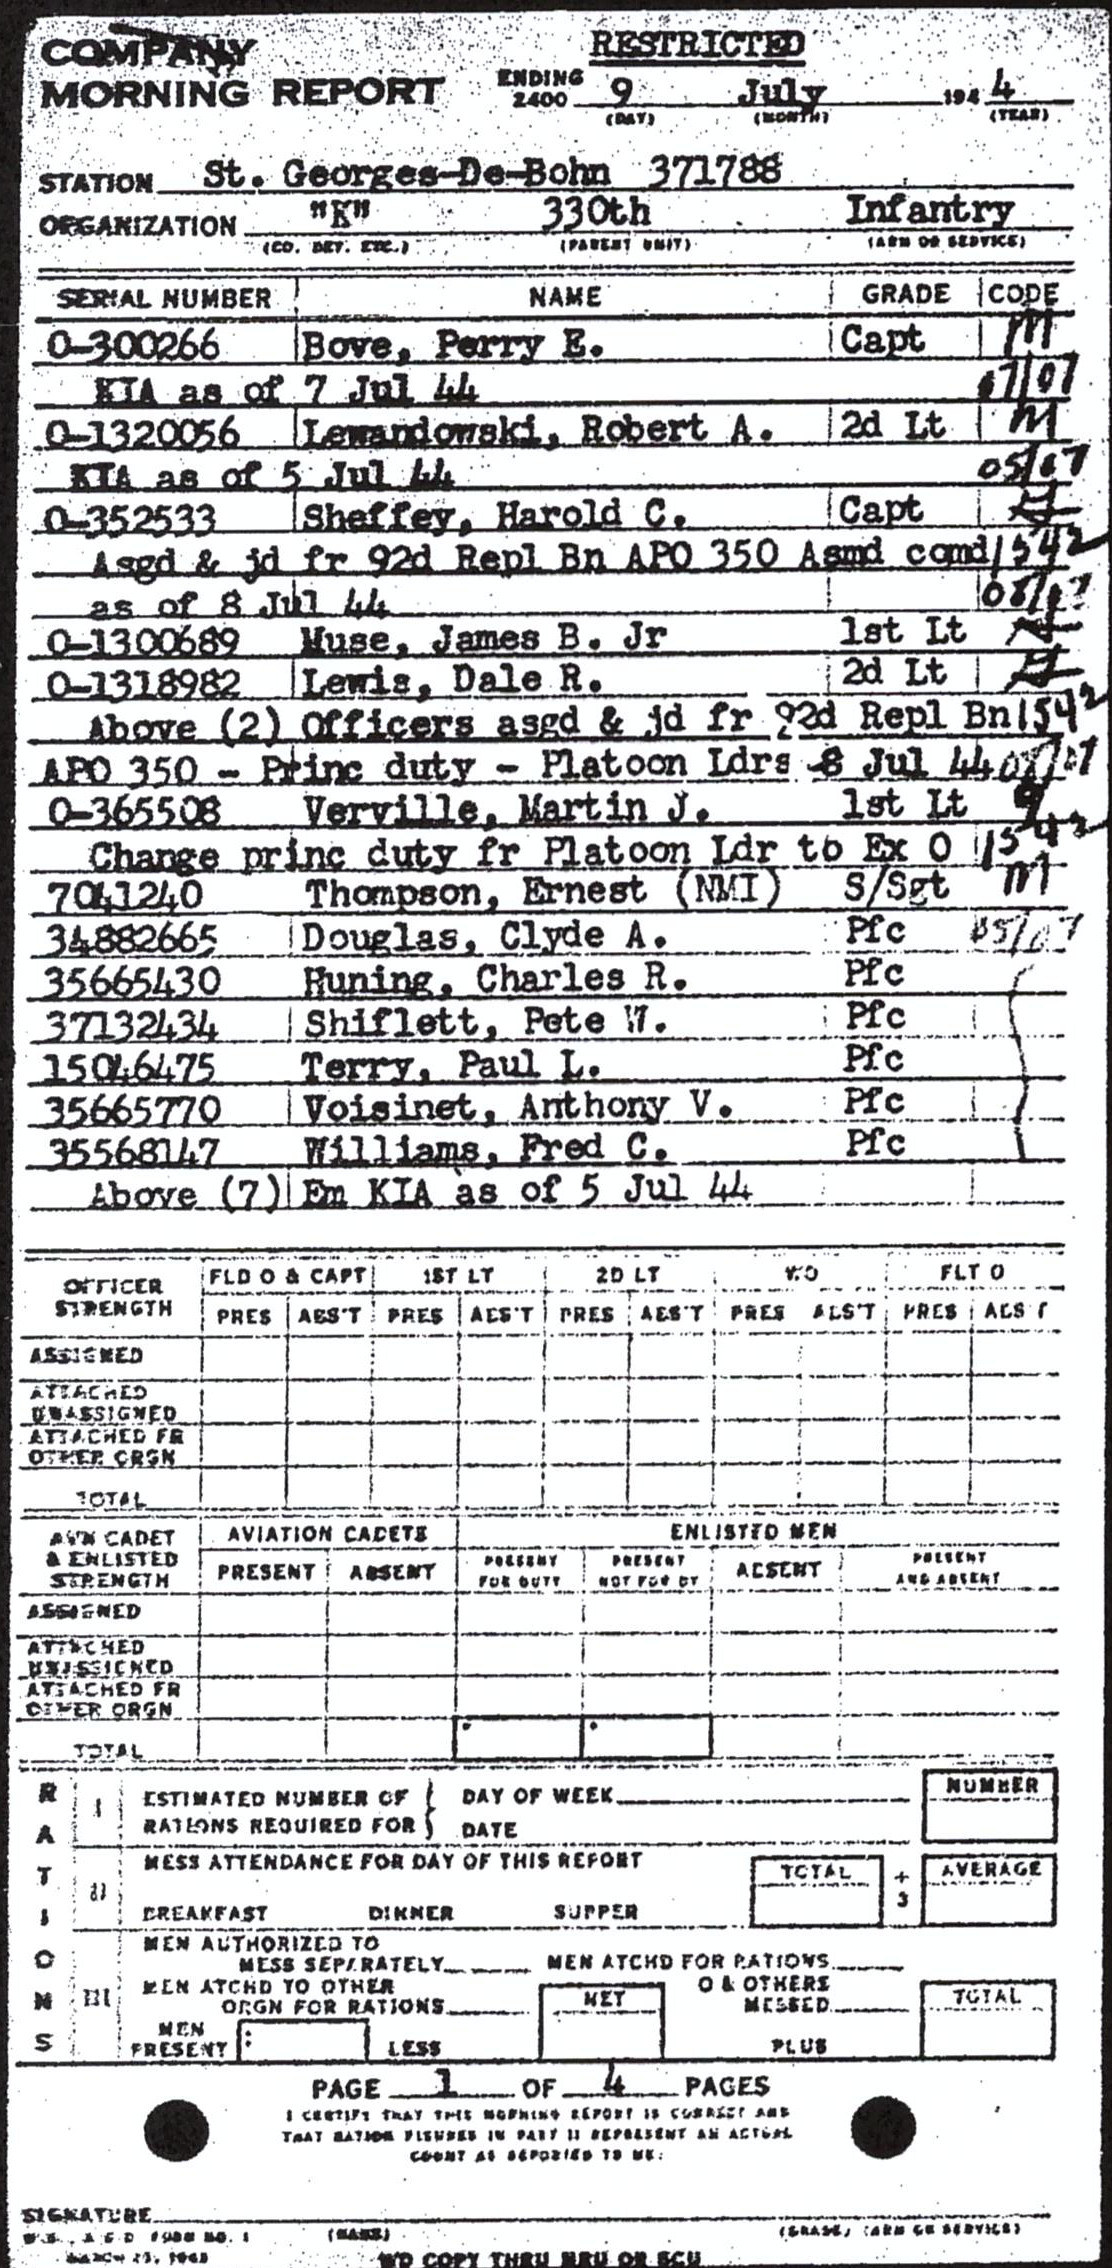 COMPANY
MORNING REPORT
RESTRICTED
ENDING 2400 9 July 1944
(DAY) (MONTH) (YEAR)
STATION St. Georges-De-Bohn 371788
ORGANIZATION "K" 330th Infantry
(CO. DET. ETC.) (PARENT UNIT) (ARM OR SERVICE)
SERIAL NUMBER NAME GRADE CODE
O-300266 Bove, Perry E. Capt M
KIA as of 7 Jul 44 07/07
O-1320056 Lewandowski, Robert A. 2d Lt M
KIA as of 5 Jul 44 05/07
O-352533 Sheffey, Harold C. Capt
Asgd & jd fr 92d Repl Bn APO 350 Asmd comd 1542
as of 8 Jul 44 08/07
O-1300689 Muse, James B. Jr 1st Lt
O-1318982 Lewis, Dale R. 2d Lt
Above (2) Officers asgd & jd fr 92d Repl Bn 1542
APO 350 - Princ duty - Platoon Ldrs 8 Jul 44 08/07
O-365508 Verville, Martin J. 1st Lt
Change princ duty fr Platoon Ldr to Ex O 1542
7041240 Thompson, Ernest (NMI) S/Sgt M
34882665 Douglas, Clyde A. Pfc 05/07
35665430 Huning, Charles R. Pfc
37132434 Shiflett, Pete W. Pfc
15046475 Terry, Paul L. Pfc
35665770 Voisinet, Anthony V. Pfc
35568147 Williams, Fred C. Pfc
Above (7) Em KIA as of 5 Jul 44
OFFICER STRENGTH FLD O & CAPT 1ST LT 2D LT WO FLT O
PRES ABS'T PRES ABS'T PRES ABS'T PRES ABS'T PRES ABS'T
ASSIGNED
ATTACHED UNASSIGNED
ATTACHED FR OTHER ORGN
TOTAL
AVN CADET & ENLISTED STRENGTH AVIATION CADETS ENLISTED MEN
PRESENT ABSENT PRESENT FOR DUTY PRESENT NOT FOR DY ABSENT PRESENT AND ABSENT
ASSIGNED
ATTACHED UNASSIGNED
ATTACHED FR OTHER ORGN
TOTAL
RATIONS
I ESTIMATED NUMBER OF RATIONS REQUIRED FOR DAY OF WEEK NUMBER
DATE
II MESS ATTENDANCE FOR DAY OF THIS REPORT TOTAL ÷ 3 AVERAGE
BREAKFAST DINNER SUPPER
III MEN AUTHORIZED TO MESS SEPARATELY MEN ATCHD FOR RATIONS
MEN ATCHD TO OTHER ORGN FOR RATIONS NET O & OTHERS MESSED TOTAL
MEN PRESENT LESS PLUS
PAGE 1 OF 4 PAGES
I CERTIFY THAT THIS MORNING REPORT IS CORRECT AND
THAT RATION FIGURES IN PART II REPRESENT AN ACTUAL
COUNT AS REPORTED TO ME:
SIGNATURE
(NAME) (GRADE) (ARM OR SERVICE)
W.D., A.G.D. FORM NO. 1
MARCH 25, 1943
WD COPY THRU MRU OR SCU